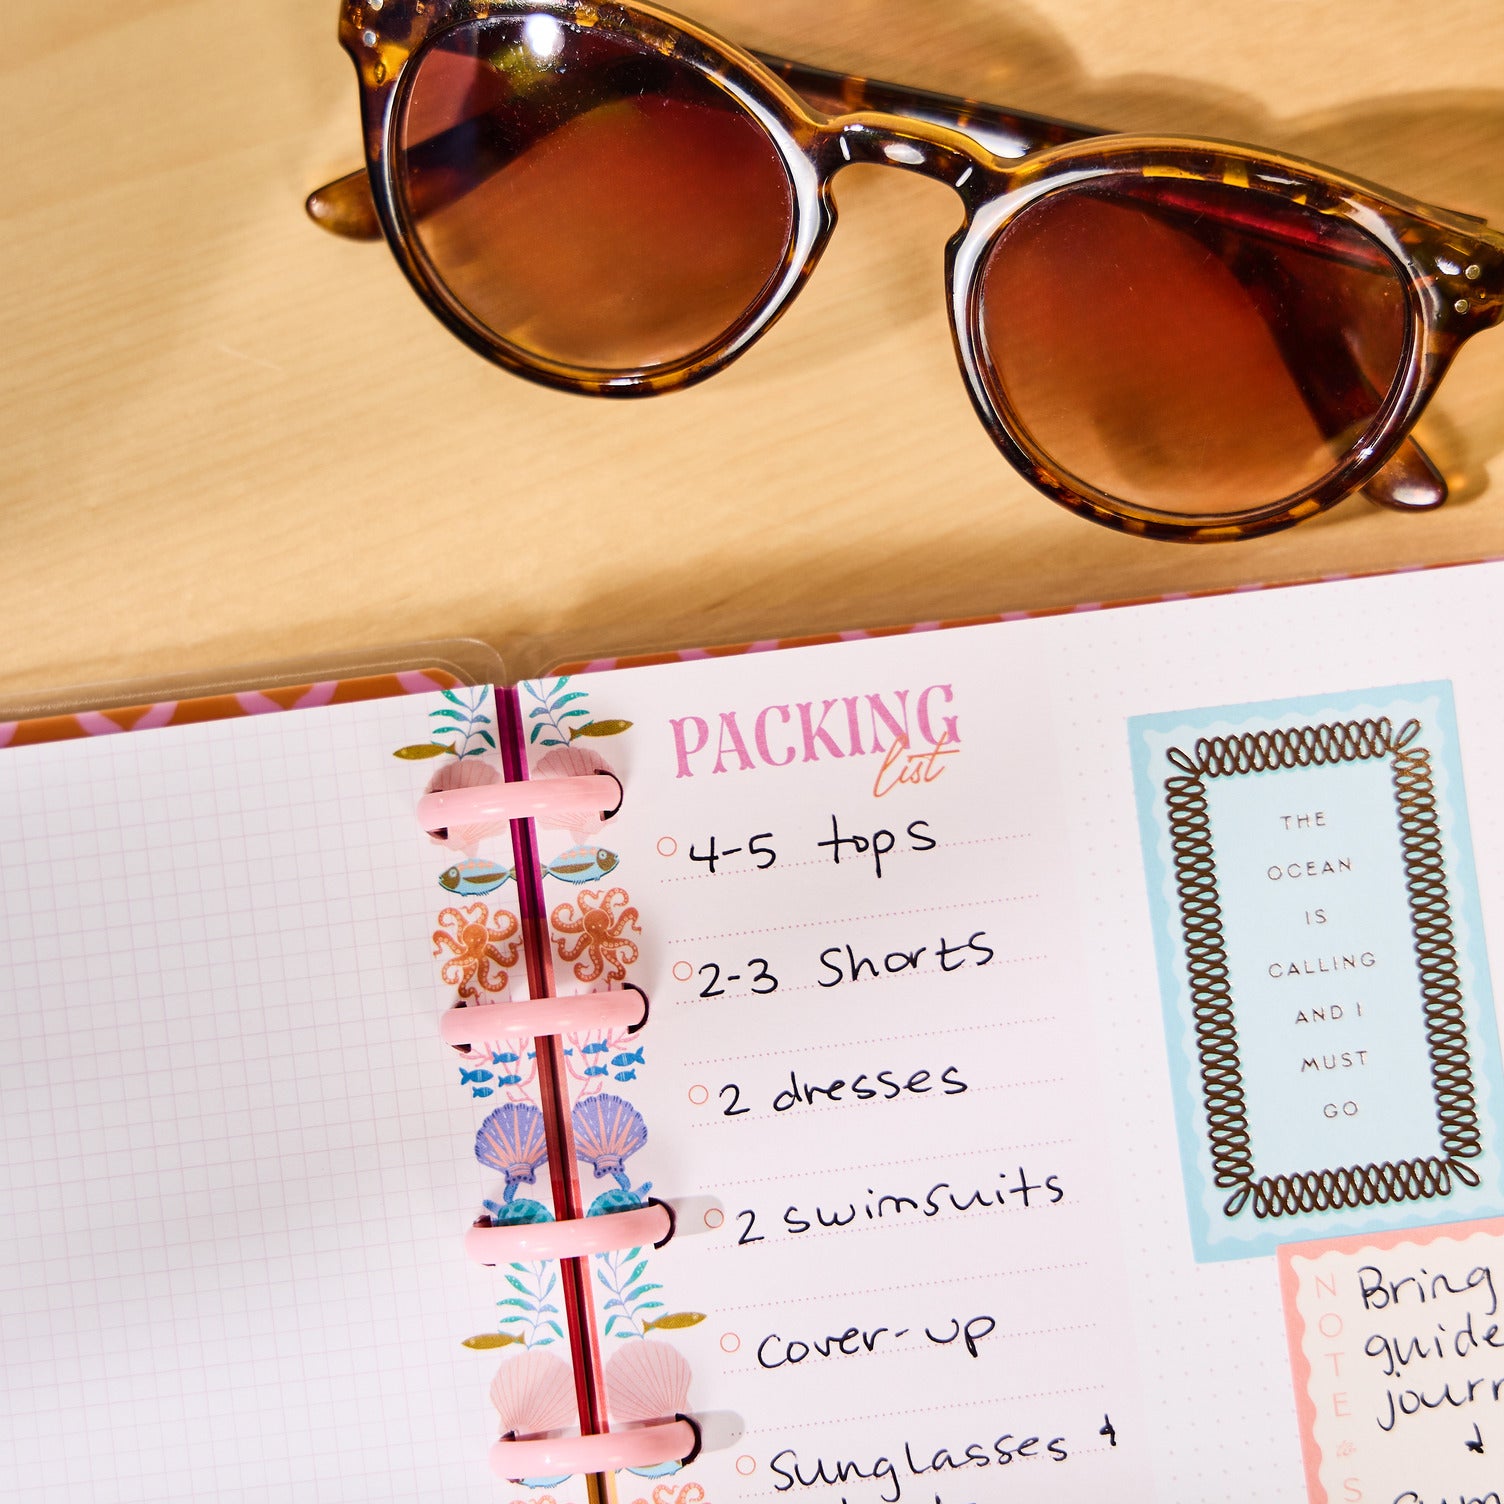 PACKING
list
4-5 tops
2-3 Shorts
2 dresses
2 swimsuits
cover-up
Sunglasses &
THE
OCEAN
IS
CALLING
AND I
MUST
GO
NOTE
to
S
Bring
guide
&